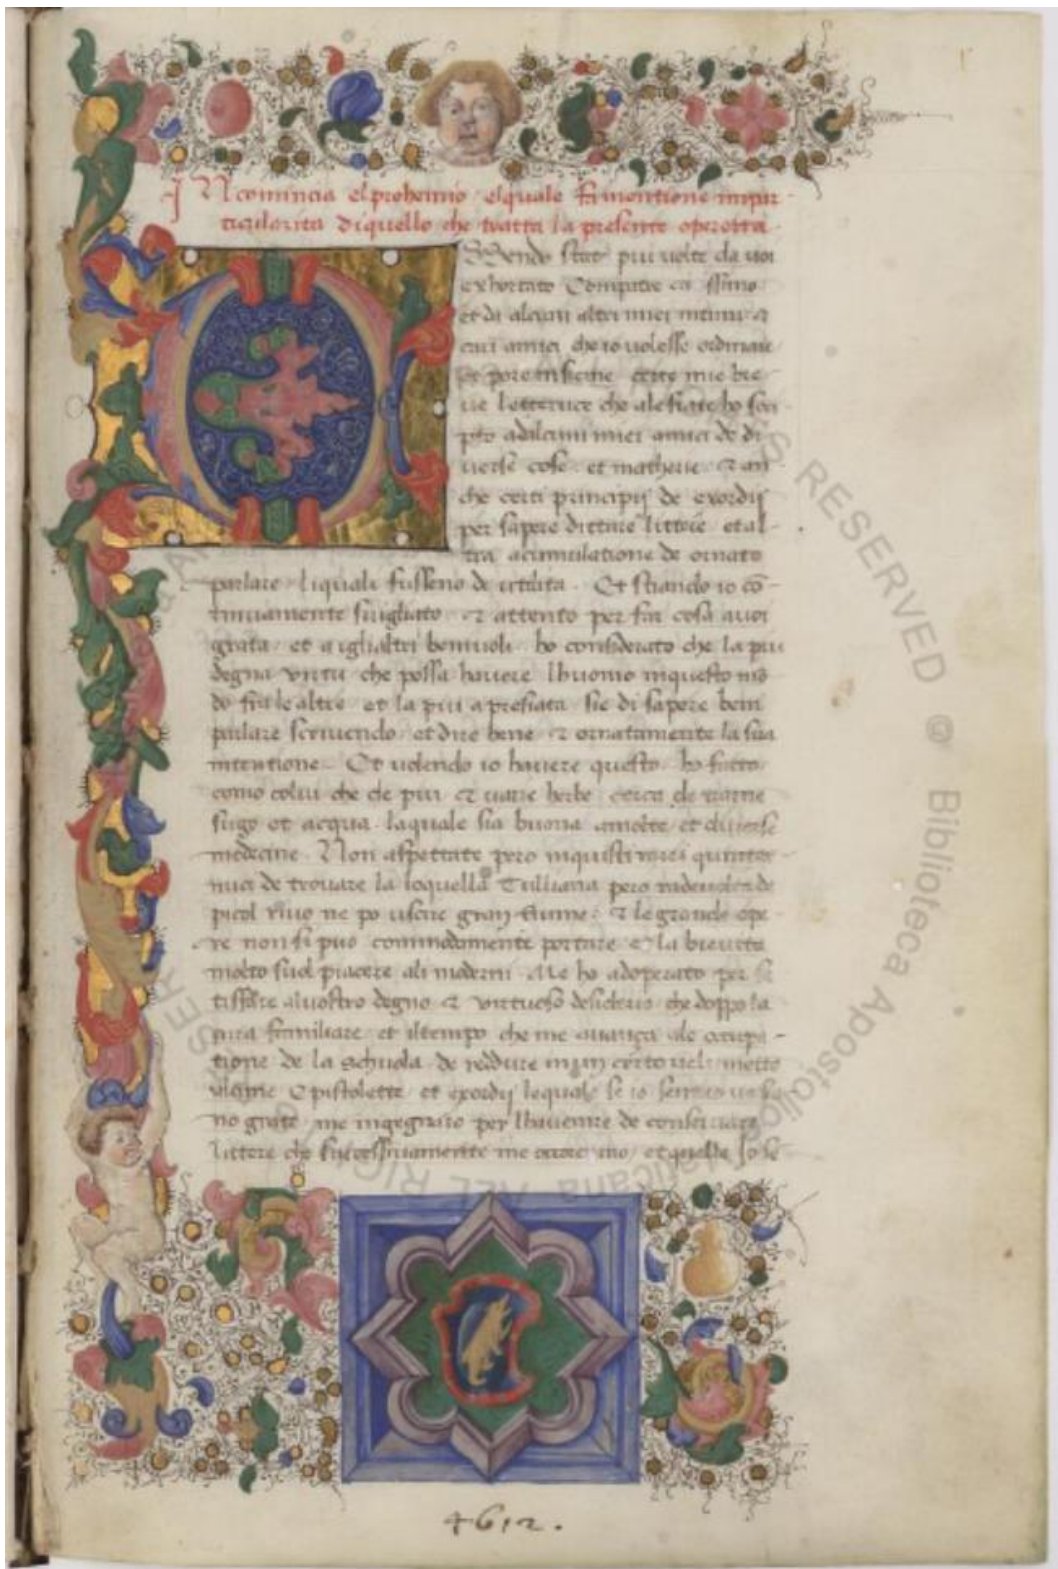 r
INcomincia el prohemio elquale fa mentione impar-
ticularita di quello che tratta la presente operetta
SSendo stato piu uolte da uoi
exhortato Compatre ca ssimo
et di alcuni altri miei intimi &
cari amici che io uolesse ordinare
et pore insieme certe mie bre-
ue letteruce che ale fiate ho scri-
pto ad alcuni miei amici de di
uerse cose et matherie & an-
che certi principij de exordij
per sapere dittare littere et al-
tra acumulatione de ornato
parlare liquali fusseno de utilita. Et stando io cō-
tinuamente suigliato & attento per far cosa auoi
grata et a iglialtri beniuoli ho considerato che la piu
degna virtu che possa hauere lhuomo in questo mō
do fra le altre et la piu apresiata sie di sapere bem
parlare scriuendo et dire bene & ornatamente la sua
intentione. Et uolendo io hauere questo ho fatto
como colui che de piu & uarie herbe cerca de trarne
sugo et acqua laquale sia buona a molte et diuerse
medecine. Non aspettate pero in quisti miei
de trouare la loquella Tulliana pero
picol riuo ne po uscire gran fiume: & le grande ope-
re non si puo commodamente portare & la breuita
molto suol piacere ali moderni. Me ho adoperato per sa
tisffare al uostro degno & virtuoso desiderio che doppo la
cura familiare et il tempo che me auanza ale ocupa-
tione de la schuola de reddure
Epistolette et exordij lequale se io sentiro
no grate me ingegnaro per lhauenire de conseruare
littere che successiuamente me et quelle
4612.
© Biblioteca Apostolica Vaticana ALL RIGHTS RESERVED